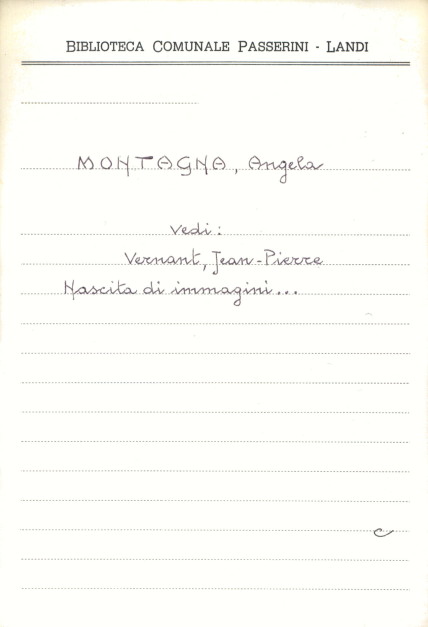 BIBLIOTECA COMUNALE PASSERINI - LANDI
MONTAGNA, Angela
Vedi:
Vernant, Jean-Pierre
Nascita di immagini...
c